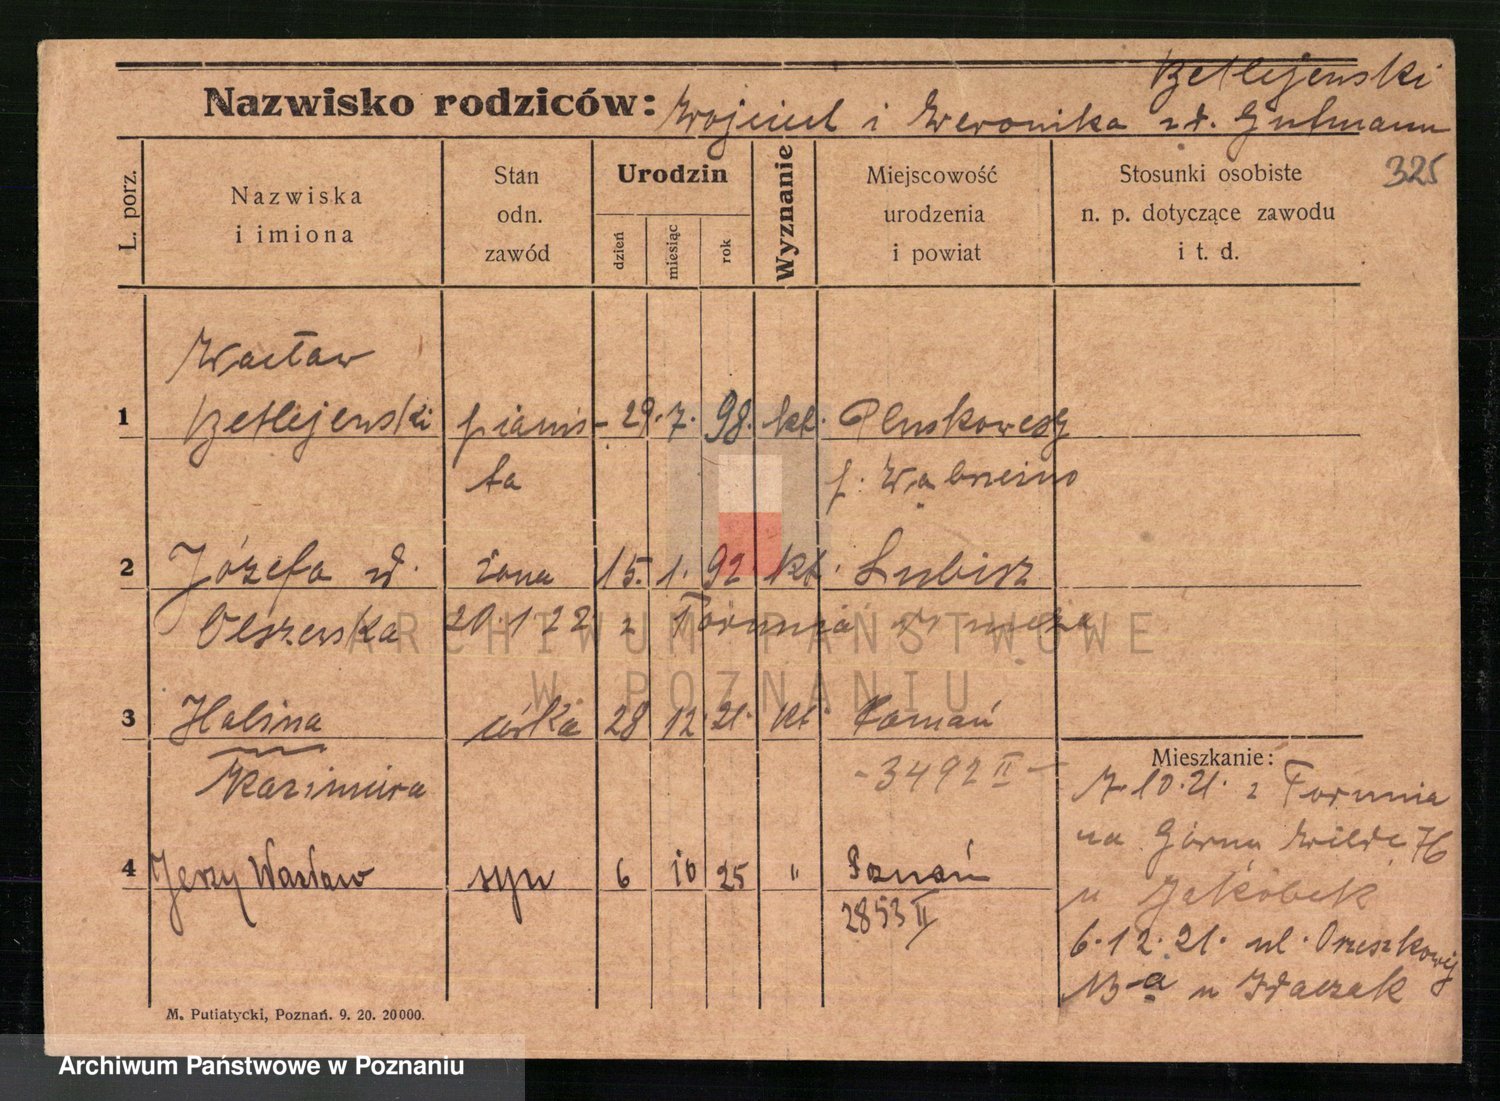 Betlejewski
Nazwisko rodziców: Wojciech i Weronika zd. Gutmann
325
L. porz.
Nazwiska i imiona
Stan odn. zawód
Urodzin
dzień miesiąc rok
Wyznanie
Miejscowość urodzenia i powiat
Stosunki osobiste n. p. dotyczące zawodu i t. d.
Wacław
1 Betlejewski pianis- 29. 7. 98. kt. Pluskowęsy
ta p. Wąbrzeźno
2 Józefa zd. żona 15. 1. 92 kt. Lubicz
Olszewska 20.1 22 z Torunia do męża
3 Halina córka 28 12. 21. kt. Poznań
Kazimiera - 3492 II -
4 Jerzy Wacław syn 6 10 25 " Poznań
2853 II
Mieszkanie:
7.10.21. z Torunia
na Górna Wilda 76
u Jakóbek
6.12.21. ul. Orzeszkowej
13-a u Idaczak
M. Putiatycki, Poznań. 9. 20. 20000.
ARCHIWUM PAŃSTWOWE
W POZNANIU
Archiwum Państwowe w Poznaniu